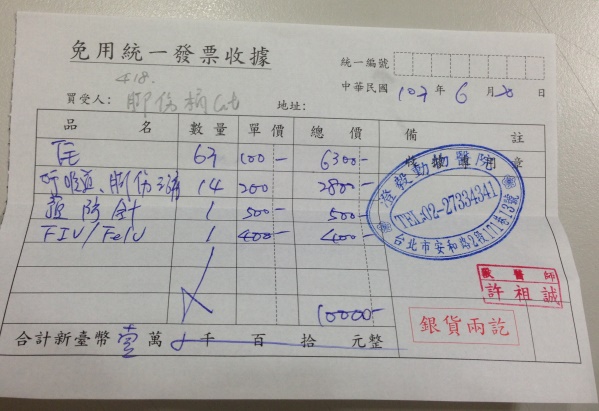 免用統一發票收據
統一編號
418.
中華民國 107 年 6 月 20 日
買受人: Cat 地址:
品名 數量 單價 總價 備註
住 63 100- 6300-
呼吸道、 14 200 2800-
預防針 1 500- 500-
FIV/FeLV 1 400- 400-
動物醫院
TEL:02-27334341
台北市安和路2段171巷13號
獸醫師
許祖誠
10000-
銀貨兩訖
合計新臺幣 壹 萬 千 百 拾 元整